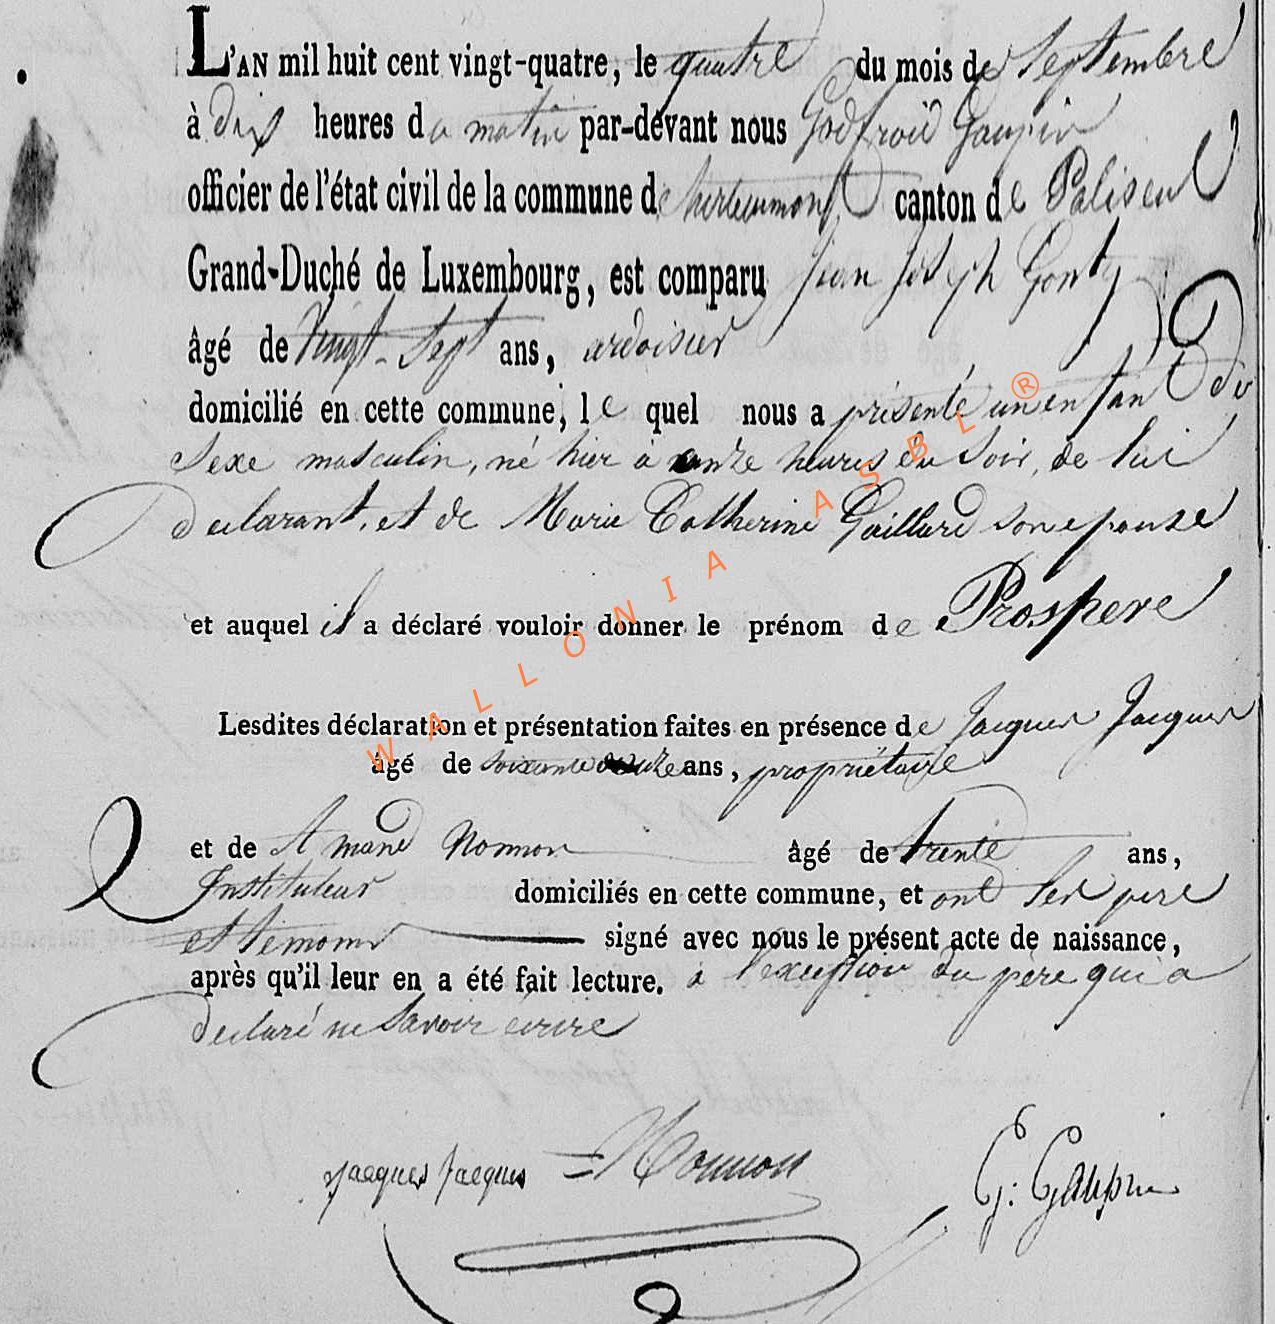 L'AN mil huit cent vingt-quatre, le quatre du mois de Septembre
à dix heures du matin par-devant nous Godfroid Gaupin
officier de l'état civil de la commune d'herbeumont canton de Paliseul
Grand-Duché de Luxembourg, est comparu Jean Joseph Gonty
âgé de vingt-sept ans, ardoisier
domicilié en cette commune, lequel nous a présenté un enfant du
Sexe masculin, né hier à onze heures du Soir, de lui
declarant, et de Marie Catherine Gaillard son epouse
et auquel il a déclaré vouloir donner le prénom de Prospere
Lesdites déclaration et présentation faites en présence de Jacques Jacques
âgé de soixante douze ans, propriétaire
et de Amand Nonnon âgé de trente ans,
Instituteur domiciliés en cette commune, et ont les pere
et temoins signé avec nous le présent acte de naissance,
après qu'il leur en a été fait lecture. à l'exception du père qui a
declaré ne Savoir ecrire
Jacques Jacques Nonnon G: Gaupin
WALLONIA ASBL ®